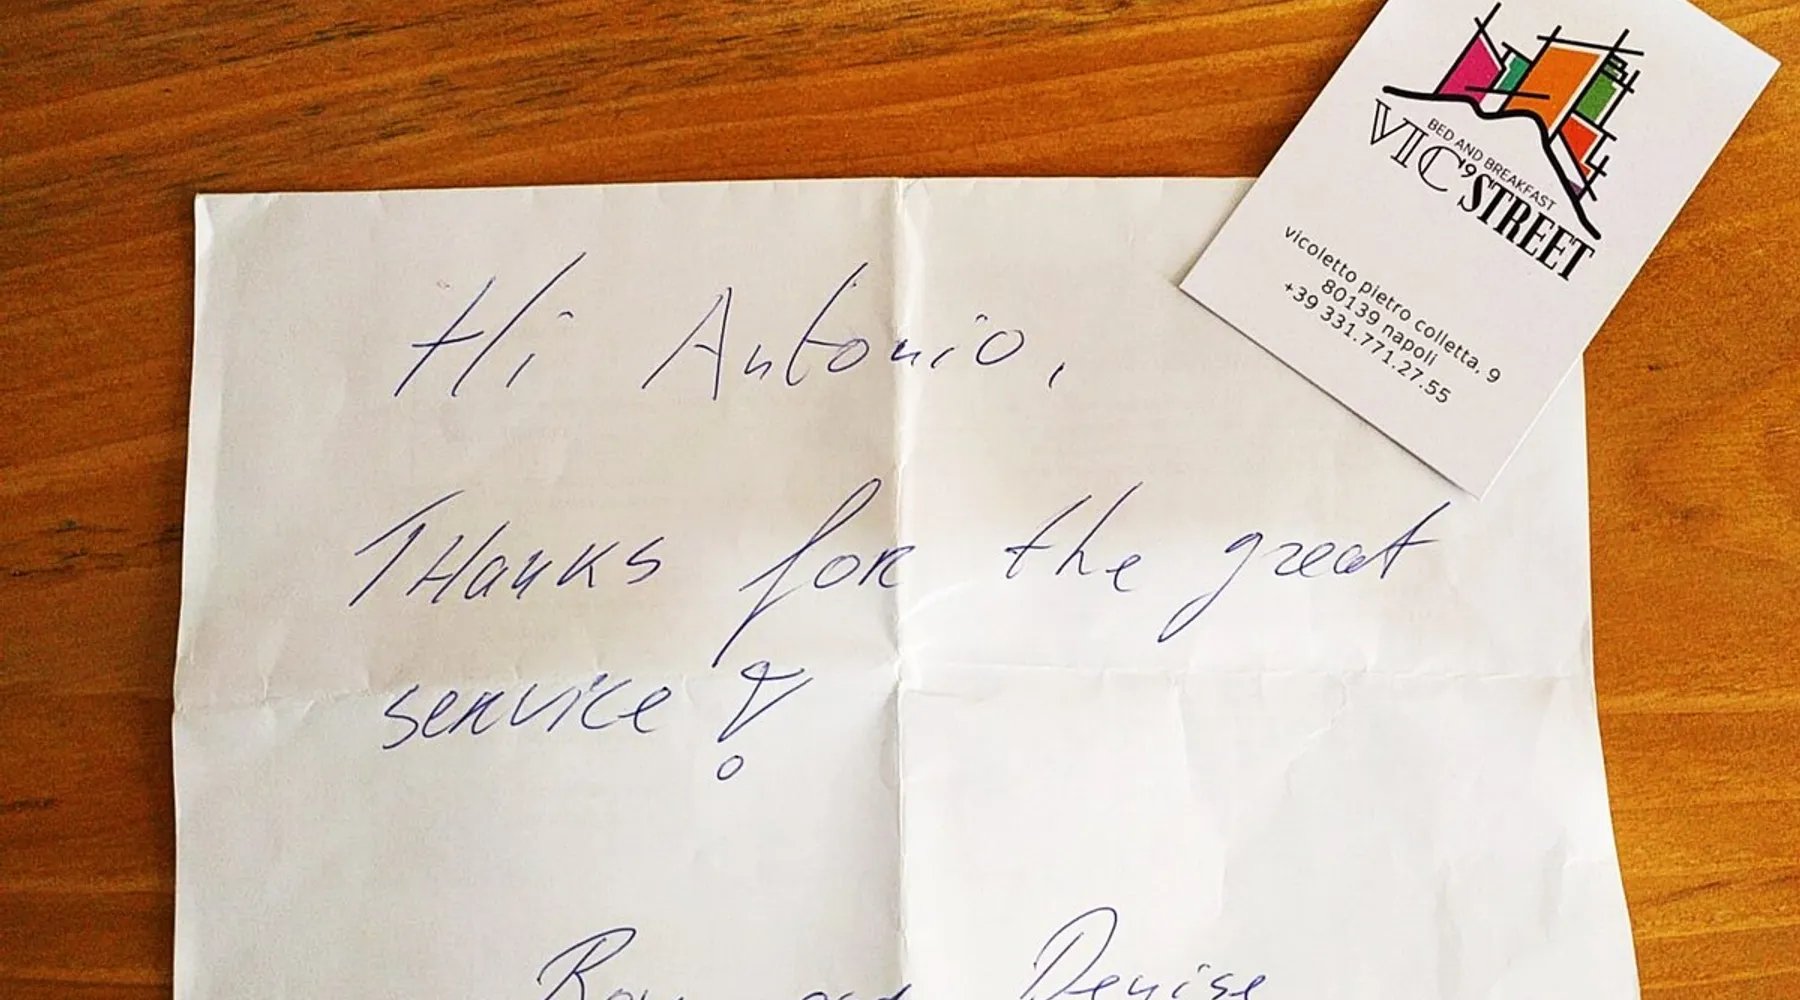 BED AND BREAKFAST
VIC'STREET
vicoletto pietro colletta, 9
80139 napoli
+39 331.771.27.55
Hi Antonio,
THanks for the great
service!
and Denise